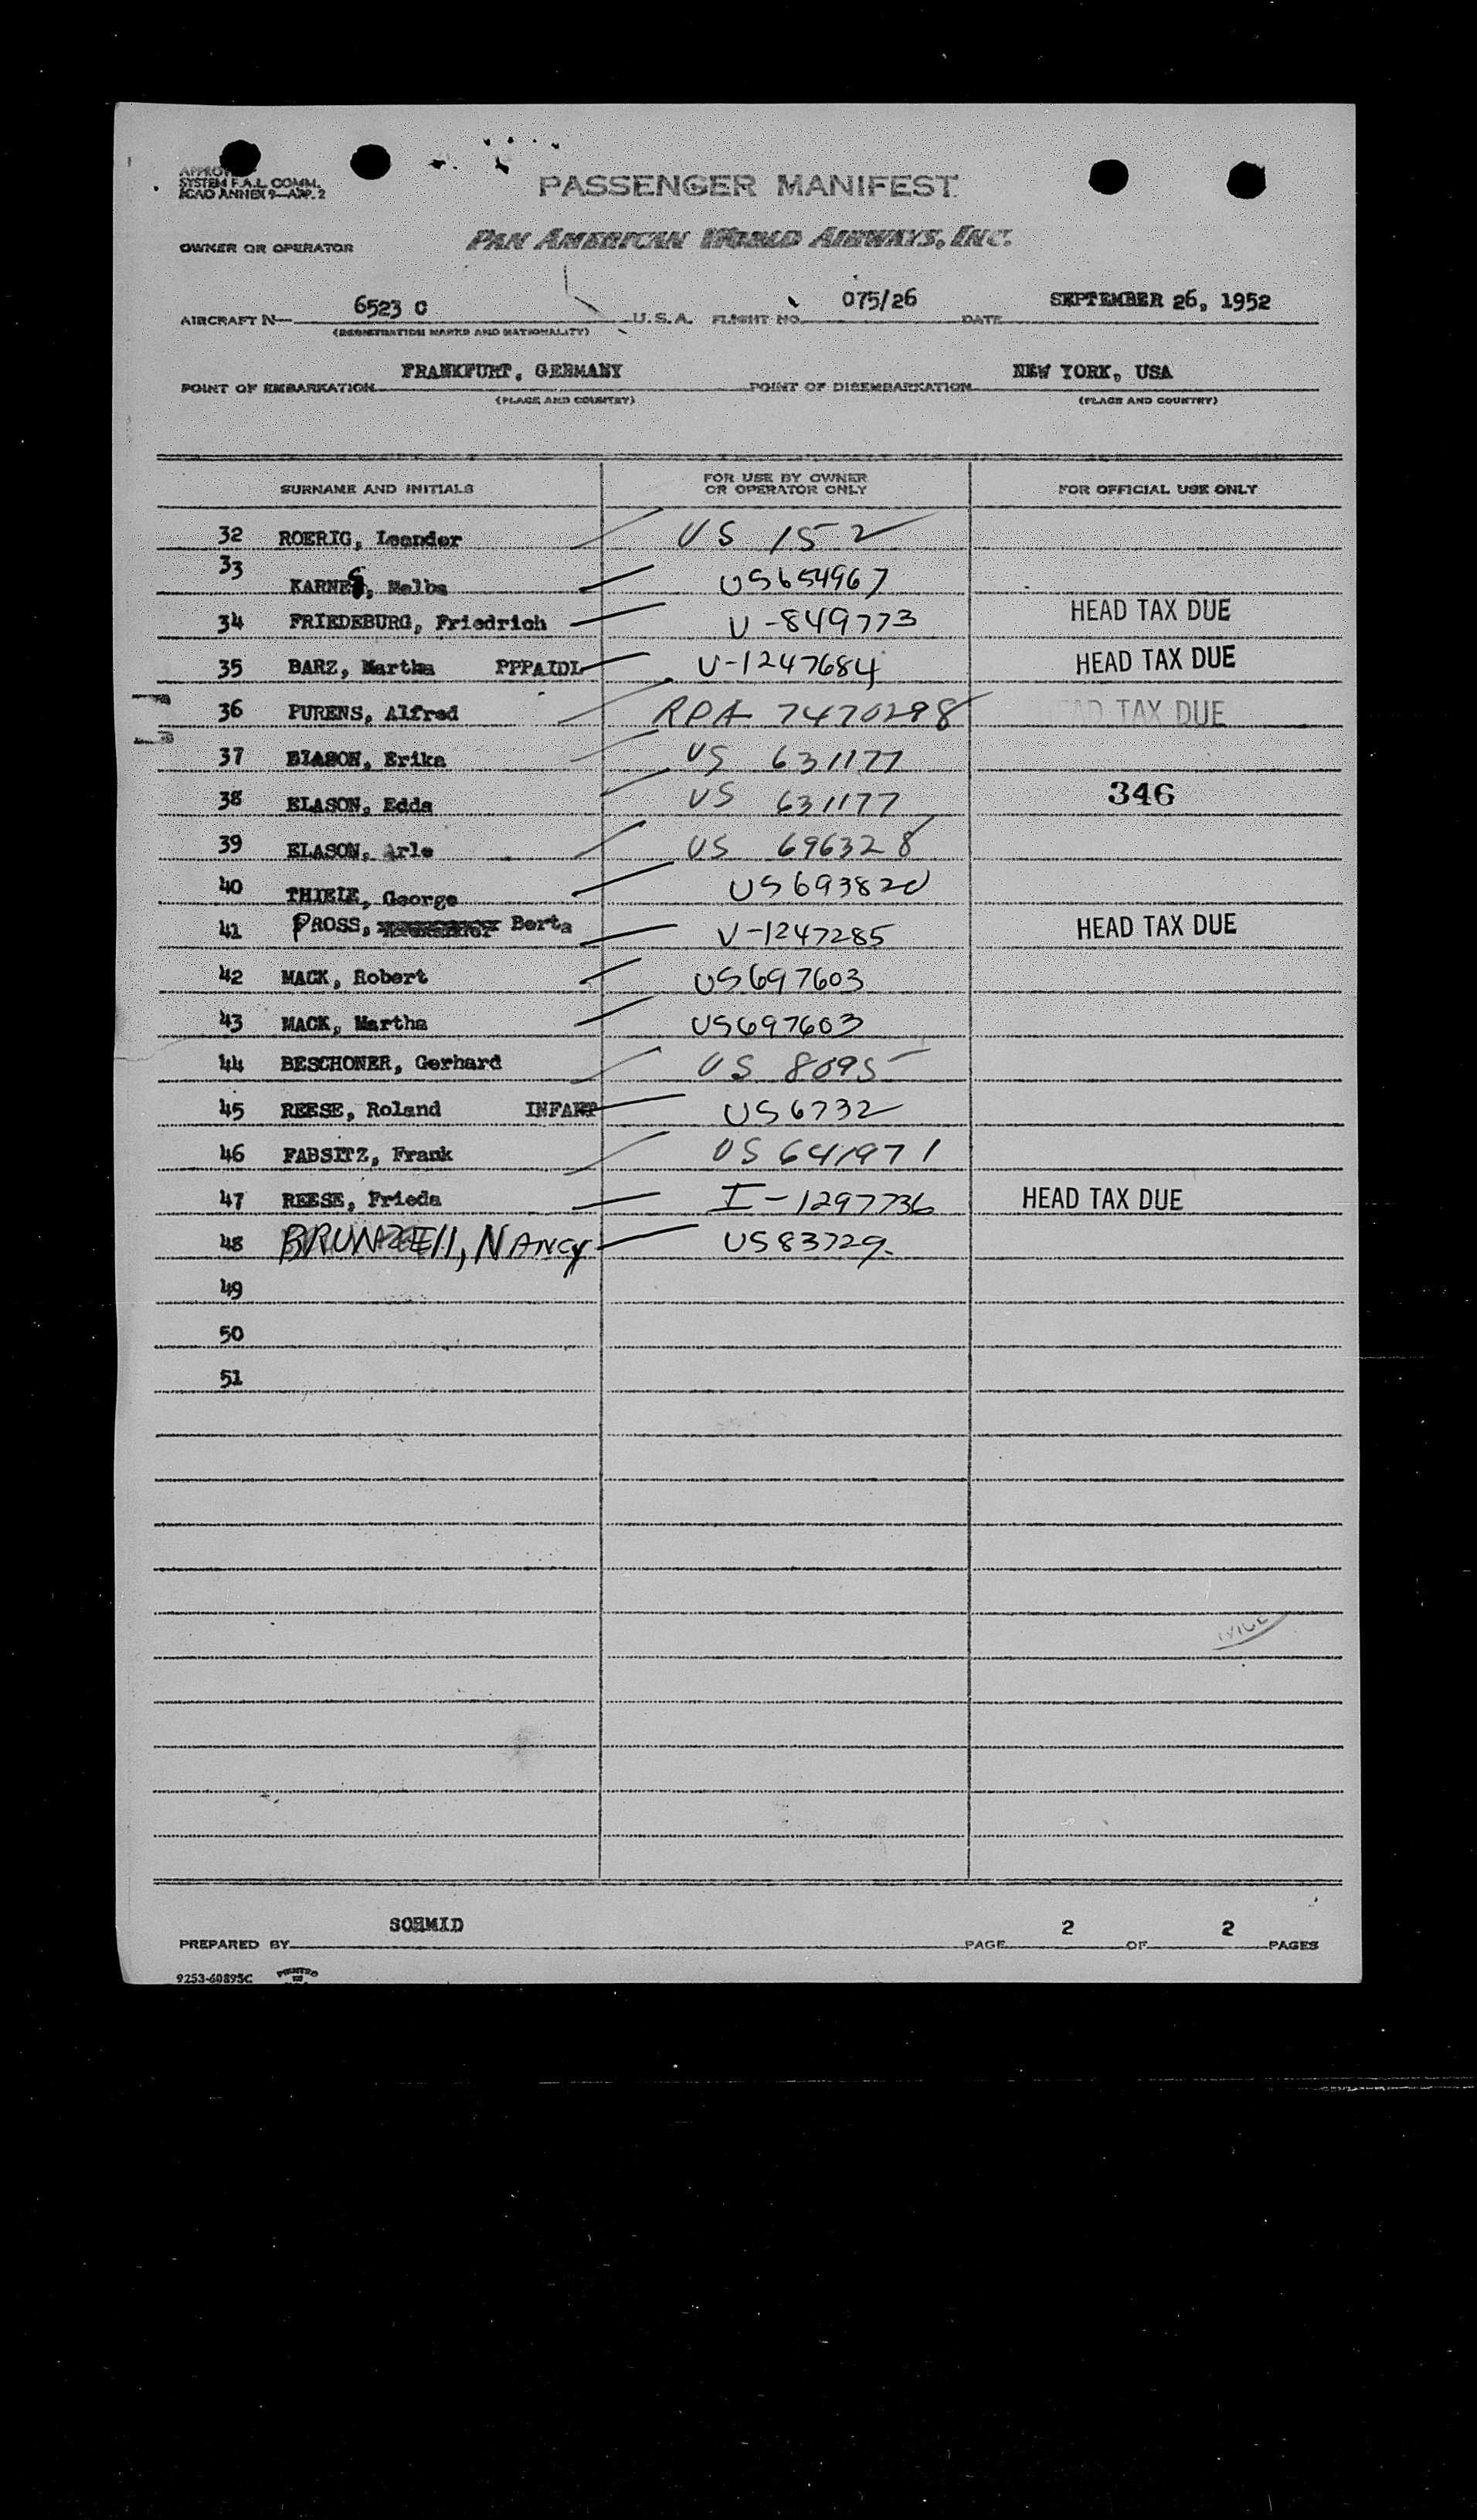 SYSTEM F.A.L. COMM.
ICAO ANNEX 9—APP. 2
PASSENGER MANIFEST
OWNER OR OPERATOR PAN AMERICAN WORLD AIRWAYS, INC.
AIRCRAFT N— 6523 C U.S.A. FLIGHT NO. 075/26 DATE SEPTEMBER 26, 1952
(REGISTRATION MARKS AND NATIONALITY)
POINT OF EMBARKATION FRANKFURT, GERMANY POINT OF DISEMBARKATION NEW YORK, USA
(PLACE AND COUNTRY) (PLACE AND COUNTRY)
SURNAME AND INITIALS FOR USE BY OWNER OR OPERATOR ONLY FOR OFFICIAL USE ONLY
32 ROERIG, Leander US 152
33 KARNES, Melba US654967
34 FRIEDEBURG, Friedrich V-849773 HEAD TAX DUE
35 BARZ, Martha PPPAIDL V-1247684 HEAD TAX DUE
36 PURENS, Alfred RPA 7470298 TAX DUE
37 ELASON, Erika US 631177
38 ELASON, Edda US 631177 346
39 ELASON, Arle US 696328
40 THIELE, George US693820
41 PROSS, Berta V-1247285 HEAD TAX DUE
42 MACK, Robert US697603
43 MACK, Martha US697603
44 BESCHONER, Gerhard US 8095
45 REESE, Roland INFANT US6732
46 FABSITZ, Frank US 641971
47 REESE, Frieda I-1297736 HEAD TAX DUE
48 BRUNZEll, NANCY US83729
49
50
51
PREPARED BY SCHMID PAGE 2 OF 2 PAGES
9253-60895C